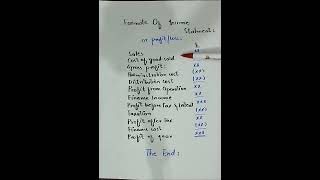 Formate Of Income
Statement:
or profit/loss:
$
Sales xx
Cost of good sold
Gross profit: xx
Administration cost (xx)
Distribution cost (xx)
Profit from Operation xx
Finance Income xx
Profit before tax & xx
Taxation (xx)
Profit after tax xx
Finance cost (xx)
Profit of year xxx
The End: